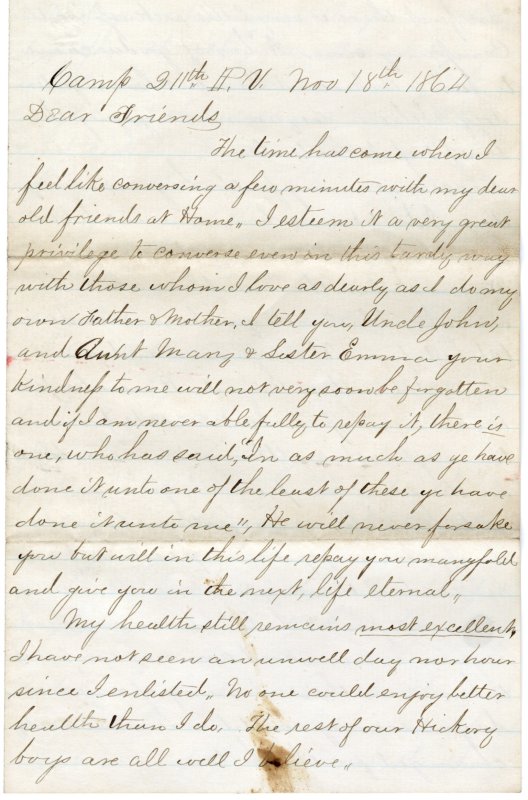 Camp 211th P. V. Nov 18th 1864
Dear Friends,
The time has come when I
feel like conversing a few minutes with my dear
old friends at Home,, I esteem it a very great
privilege to converse even in this tardy way
with those whom I love as dearly as I do my
own Father & Mother, I tell you, Uncle John,
and Aunt Mary & Sister Emma your
kindness to me will not very soon be forgotten
and if I am never able fully to repay it, there is
one, who has said, "In as much as ye have
done it unto one of the least of these ye have
done it unto me", He will never forsake
you but will in this life repay you manyfold
and give you in the next, life eternal,,
My health still remains most excellent,
I have not seen an unwell day nor hour
since I enlisted,, No one could enjoy better
health than I do. The rest of our Hickory
boys are all well I believe,,